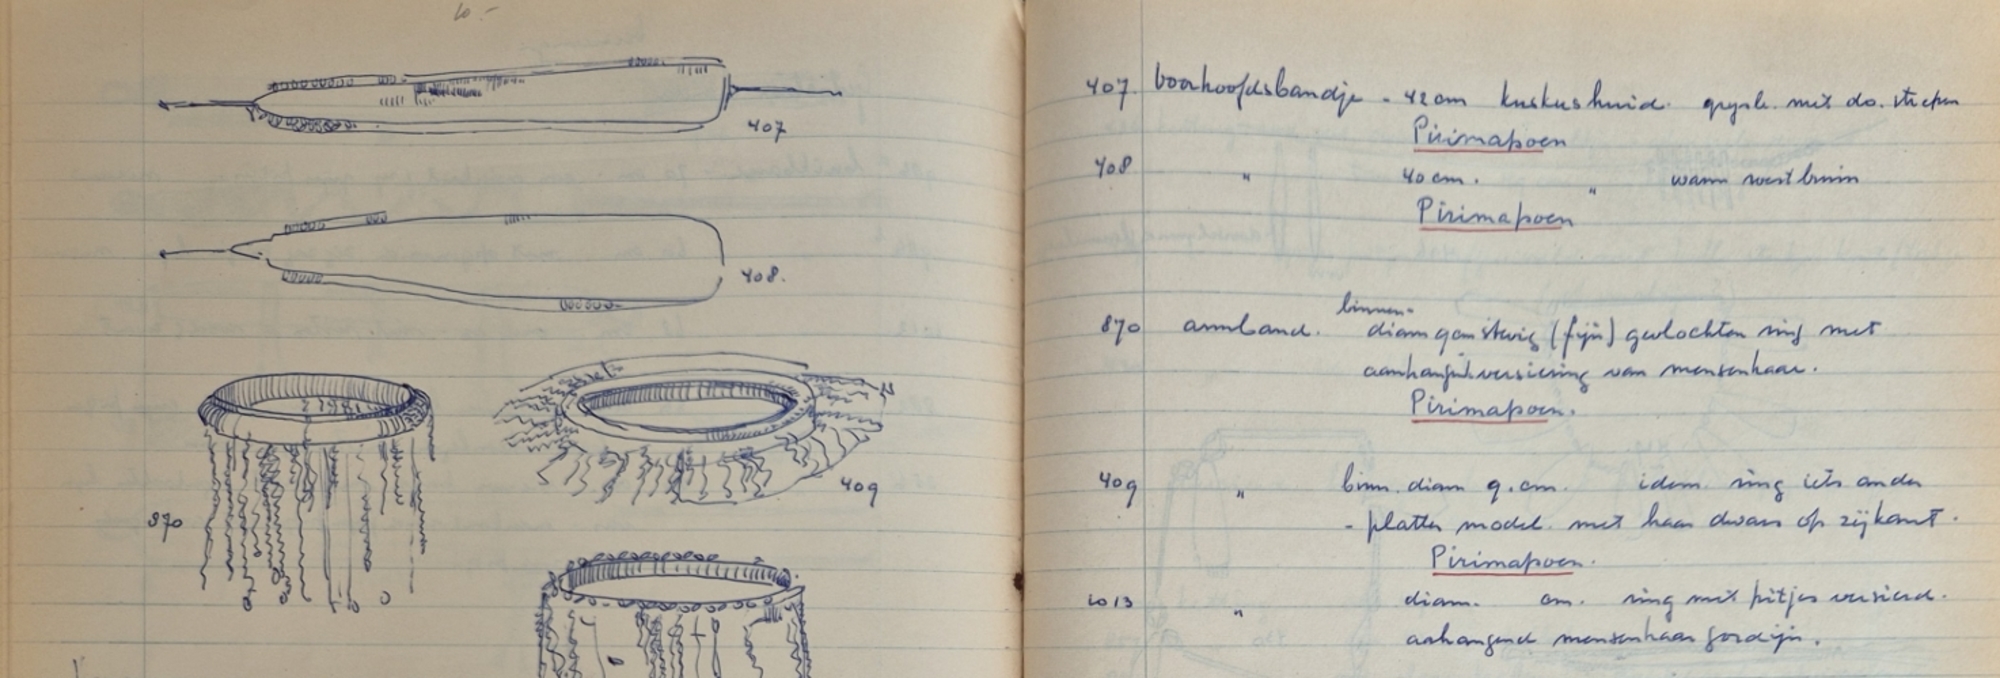 10.-
407
408.
870
409
407. voorhoofdsbandje - 42 cm kuskushuid. grijsb. met do. strepen
Pirimapoen
408 " 40 cm. " warm roestbruin
Pirimapoen
binnen-
870 armband. diam 9 cm stevig (fijn) gevlochten ring met
aanhangsel versiering van mensenhaar.
Pirimapoen.
409 " binn. diam 9. cm. idem ring iets ander
- platter model. met haar dwars op zijkant.
Pirimapoen.
1013 " diam. cm. ring met pitjes versierd.
aanhangend mensenhaar gordijn.